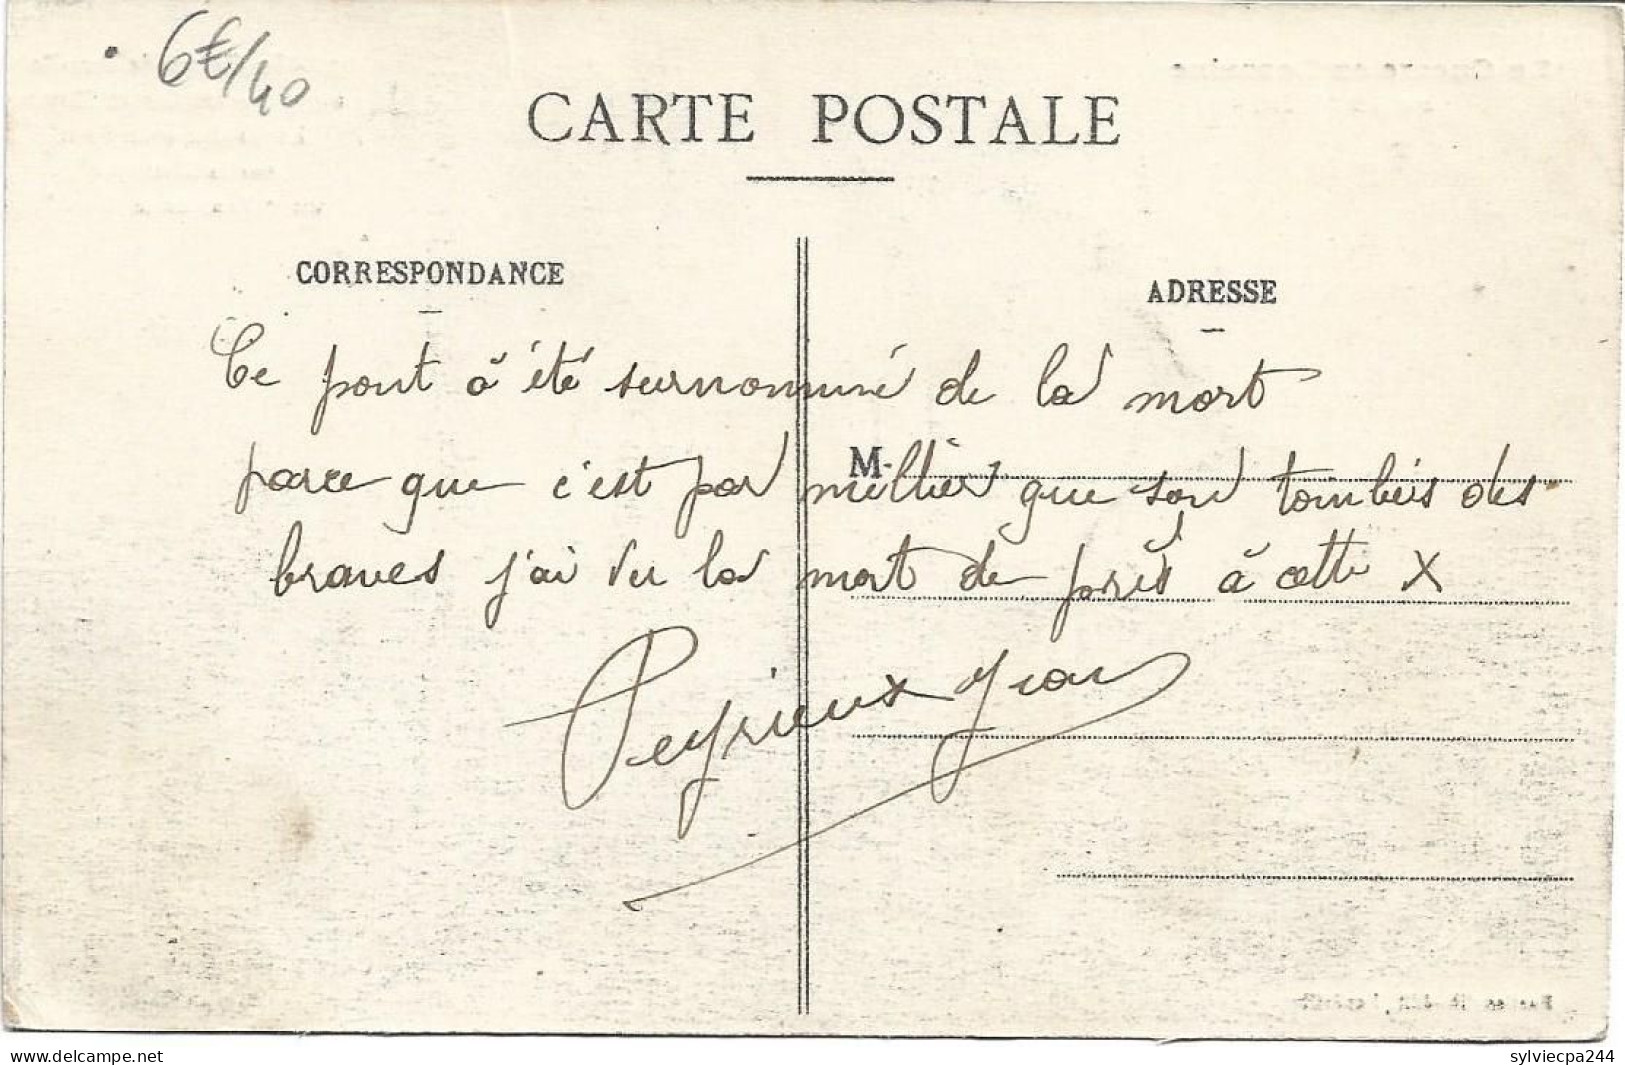 6€/40
CARTE POSTALE
CORRESPONDANCE
ADRESSE
Ce pont à été surnommé de la mort
parce que c'est par millier que son tombéis des
M
braves j'ai vu la mort de près à cette X
Peyrieux
delcampe.net
sylviecpa244